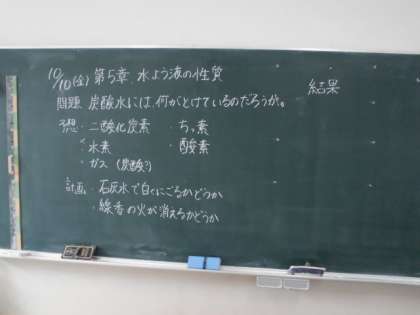 10/10(金) 第5章 水よう液の性質
問題 炭酸水には、何がとけているのだろうか。
結果
予想・二酸化炭素 ・ちっ素
・水素 ・酸素
・ガス(炭酸?)
計画・石灰水で白くにごるかどうか
・線香の火が消えるかどうか